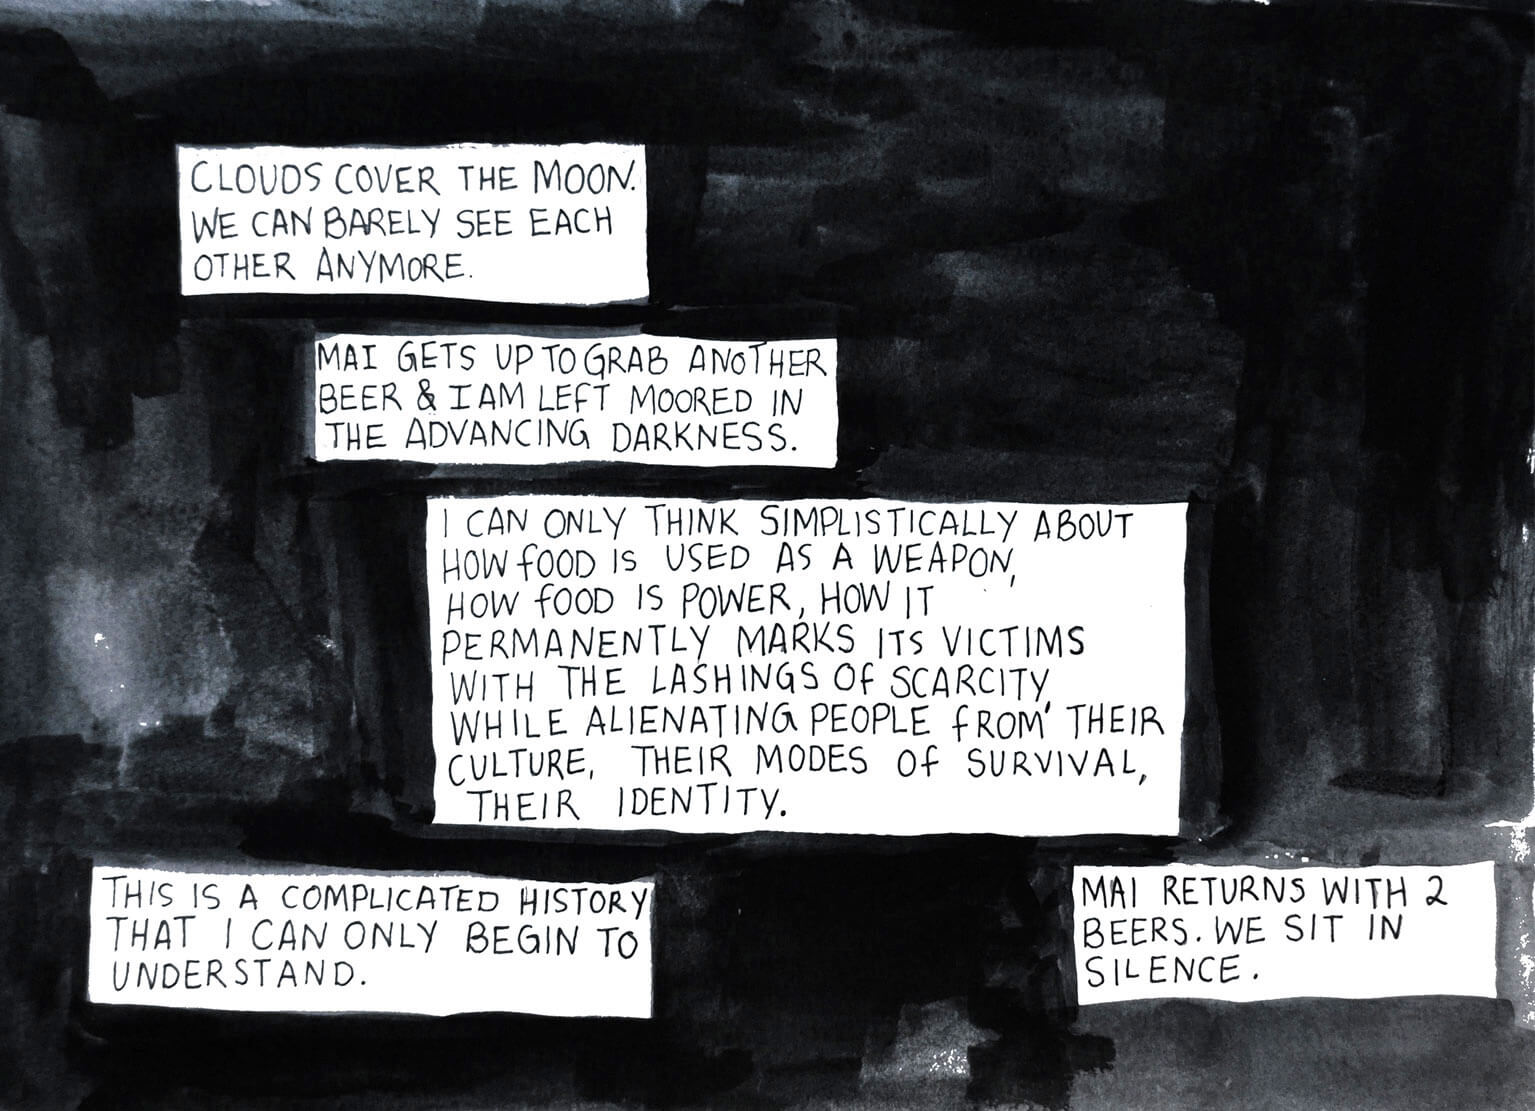 CLOUDS COVER THE MOON.
WE CAN BARELY SEE EACH
OTHER ANYMORE.
MAI GETS UP TO GRAB ANOTHER
BEER & I AM LEFT MOORED IN
THE ADVANCING DARKNESS.
I CAN ONLY THINK SIMPLISTICALLY ABOUT
HOW FOOD IS USED AS A WEAPON,
HOW FOOD IS POWER, HOW IT
PERMANENTLY MARKS ITS VICTIMS
WITH THE LASHINGS OF SCARCITY,
WHILE ALIENATING PEOPLE FROM THEIR
CULTURE, THEIR MODES OF SURVIVAL,
THEIR IDENTITY.
THIS IS A COMPLICATED HISTORY
THAT I CAN ONLY BEGIN TO
UNDERSTAND.
MAI RETURNS WITH 2
BEERS. WE SIT IN
SILENCE.